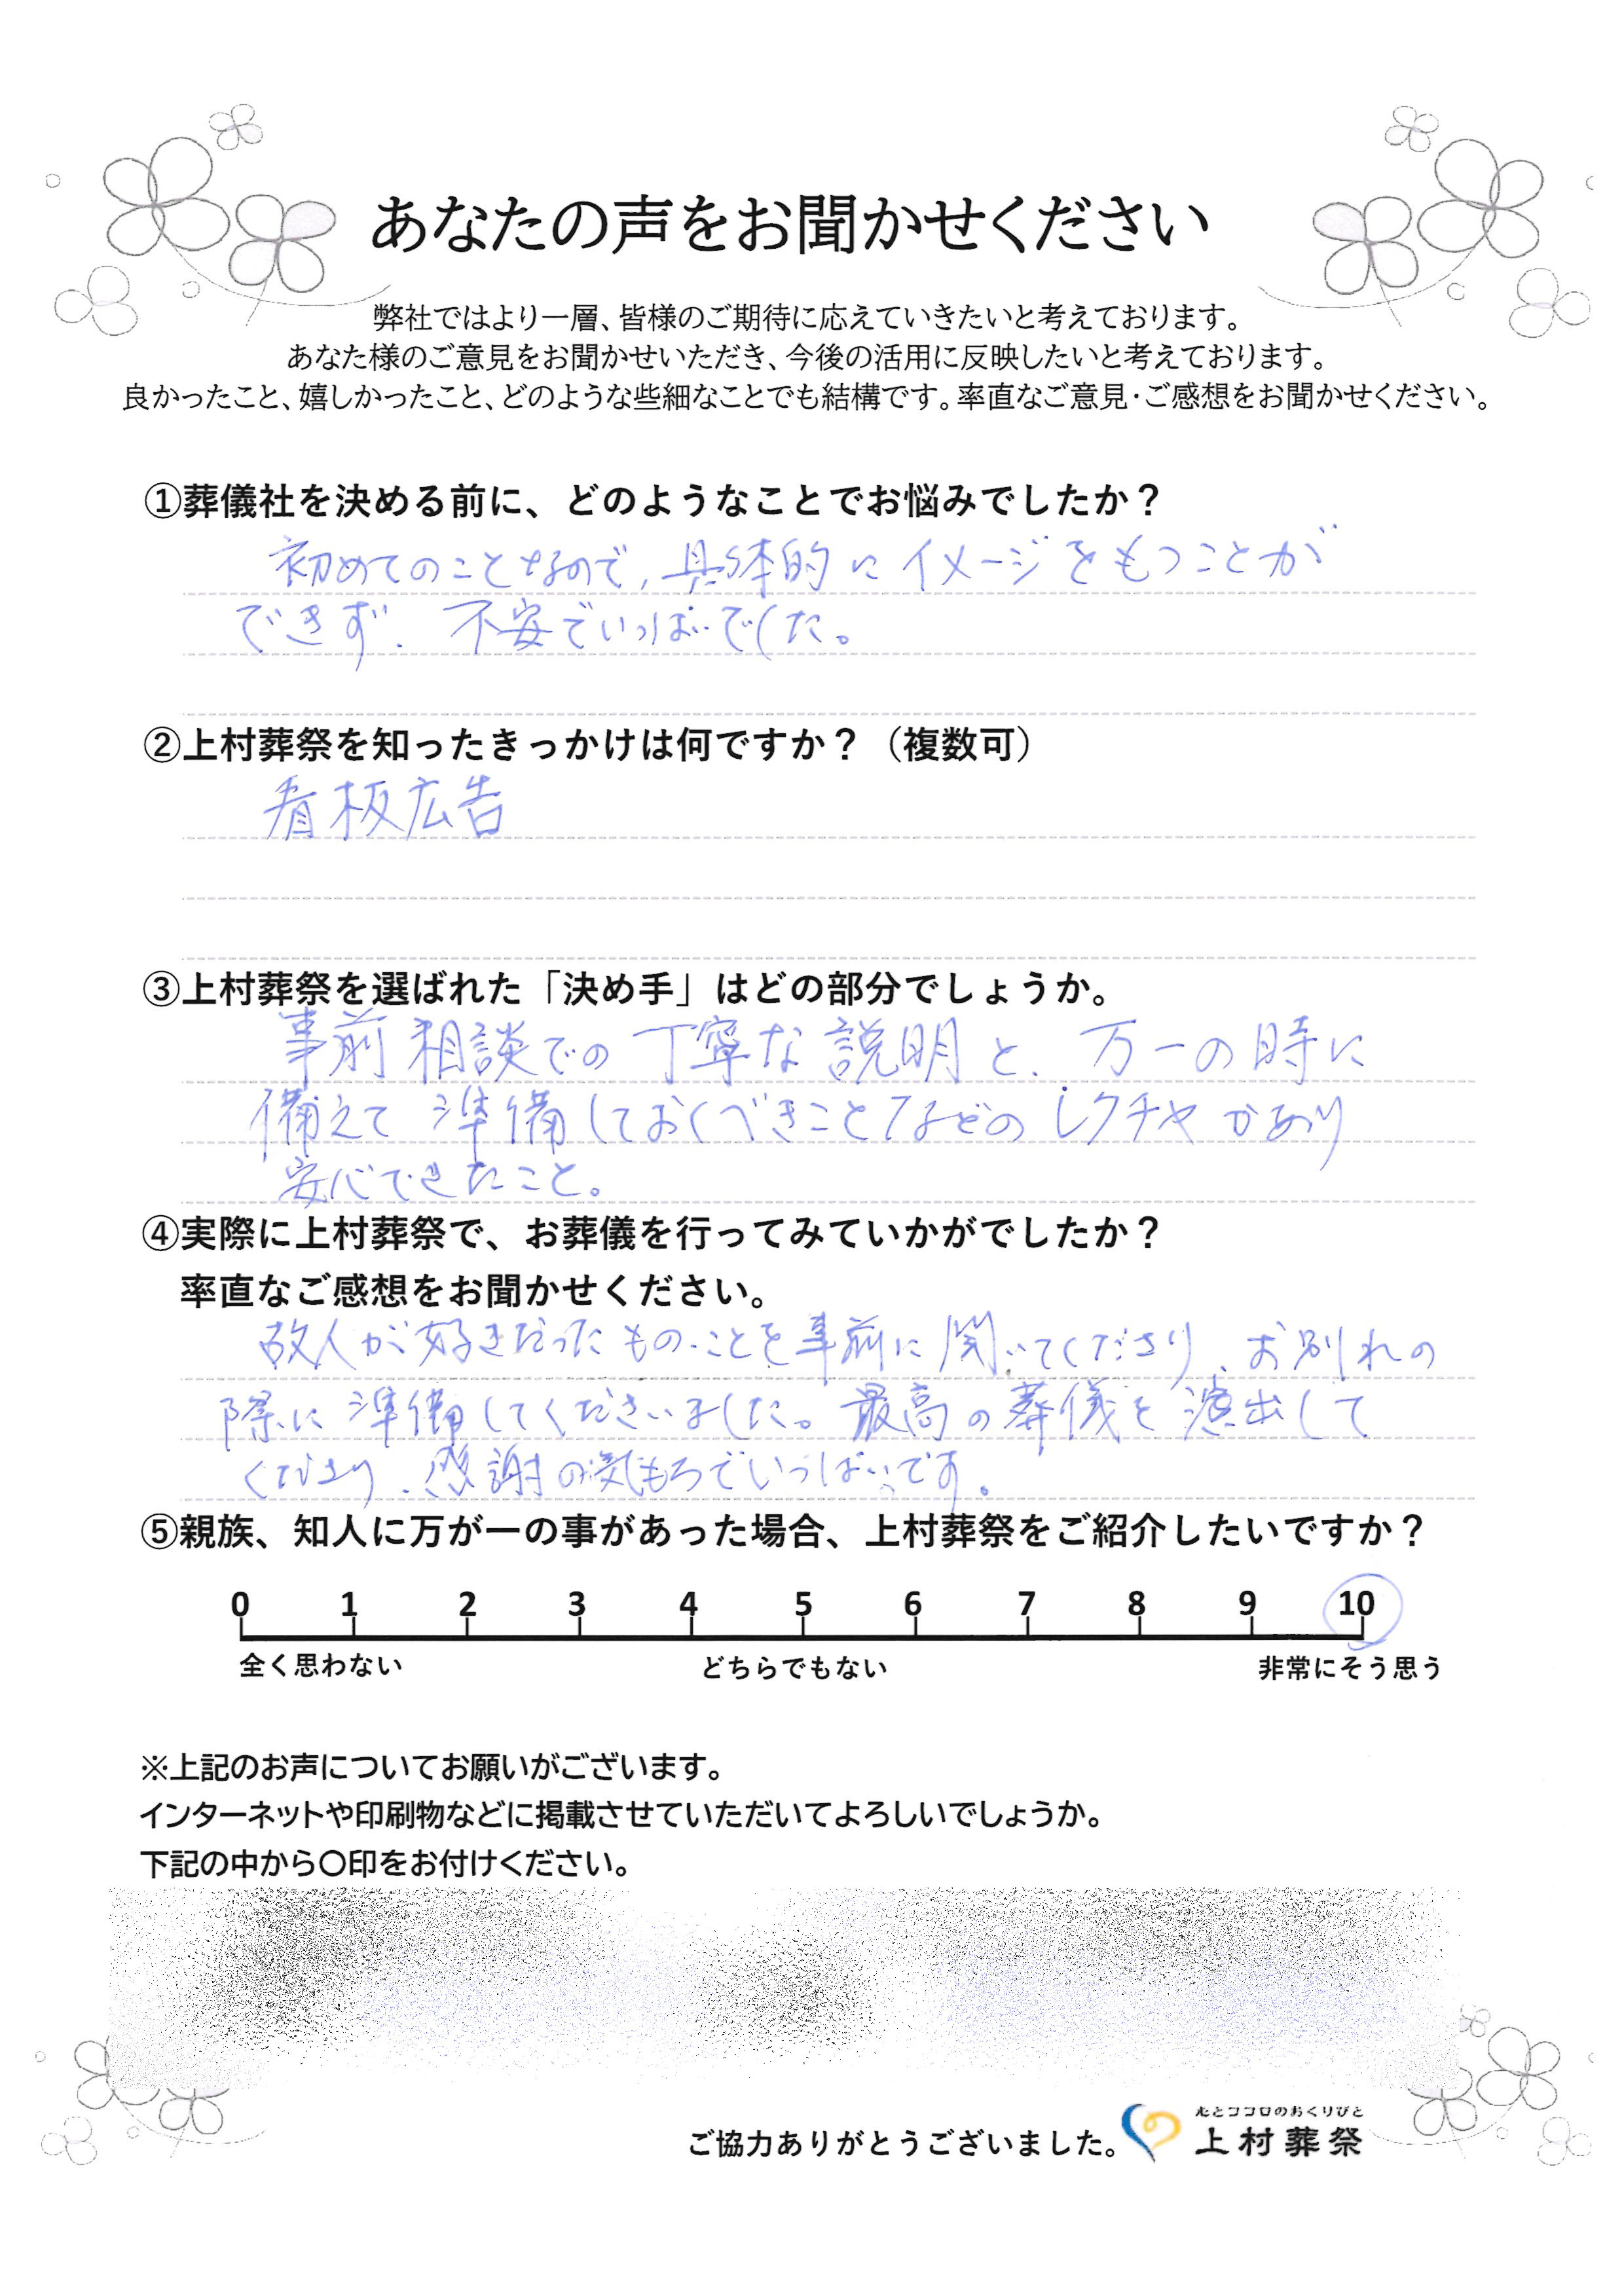 あなたの声をお聞かせください
弊社ではより一層、皆様のご期待に応えていきたいと考えております。
あなた様のご意見をお聞かせいただき、今後の活用に反映したいと考えております。
良かったこと、嬉しかったこと、どのような些細なことでも結構です。率直なご意見・ご感想をお聞かせください。
①葬儀社を決める前に、どのようなことでお悩みでしたか？
初めてのことなので，具体的にイメージをもつことが
できず、不安でいっぱいでした。
②上村葬祭を知ったきっかけは何ですか？（複数可）
看板広告
③上村葬祭を選ばれた「決め手」はどの部分でしょうか。
事前相談での丁寧な説明と、万一の時に
備えて準備しておくべきことなどのレクチャがあり
安心できたこと。
④実際に上村葬祭で、お葬儀を行ってみていかがでしたか？
率直なご感想をお聞かせください。
故人が好きだったもの・ことを事前に聞いてくださり、お別れの
際に準備してくださいました。最高の葬儀を演出して
くださり、感謝の気もちでいっぱいです。
⑤親族、知人に万が一の事があった場合、上村葬祭をご紹介したいですか？
0 1 2 3 4 5 6 7 8 9 10
全く思わない どちらでもない 非常にそう思う
※上記のお声についてお願いがございます。
インターネットや印刷物などに掲載させていただいてよろしいでしょうか。
下記の中から〇印をお付けください。
心とココロのおくりびと
ご協力ありがとうございました。 上村葬祭